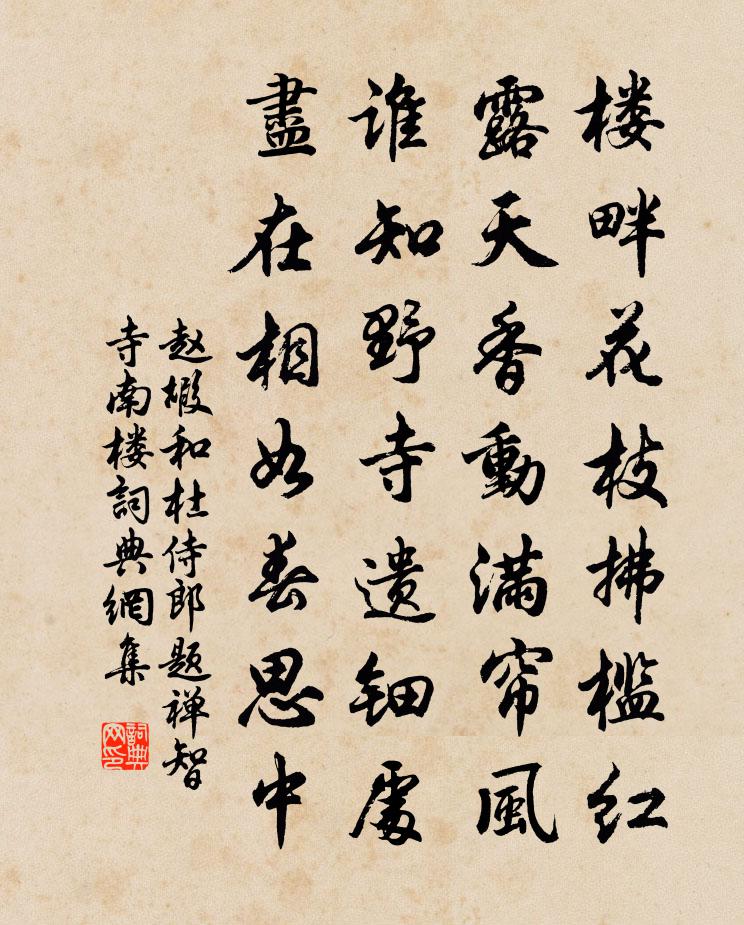 楼畔花枝拂槛红
露天香動满帘風
谁知野寺遗钿處
盡在相如春思中
赵嘏和杜侍郎题禅智
寺南楼詞典網集
詞典网印